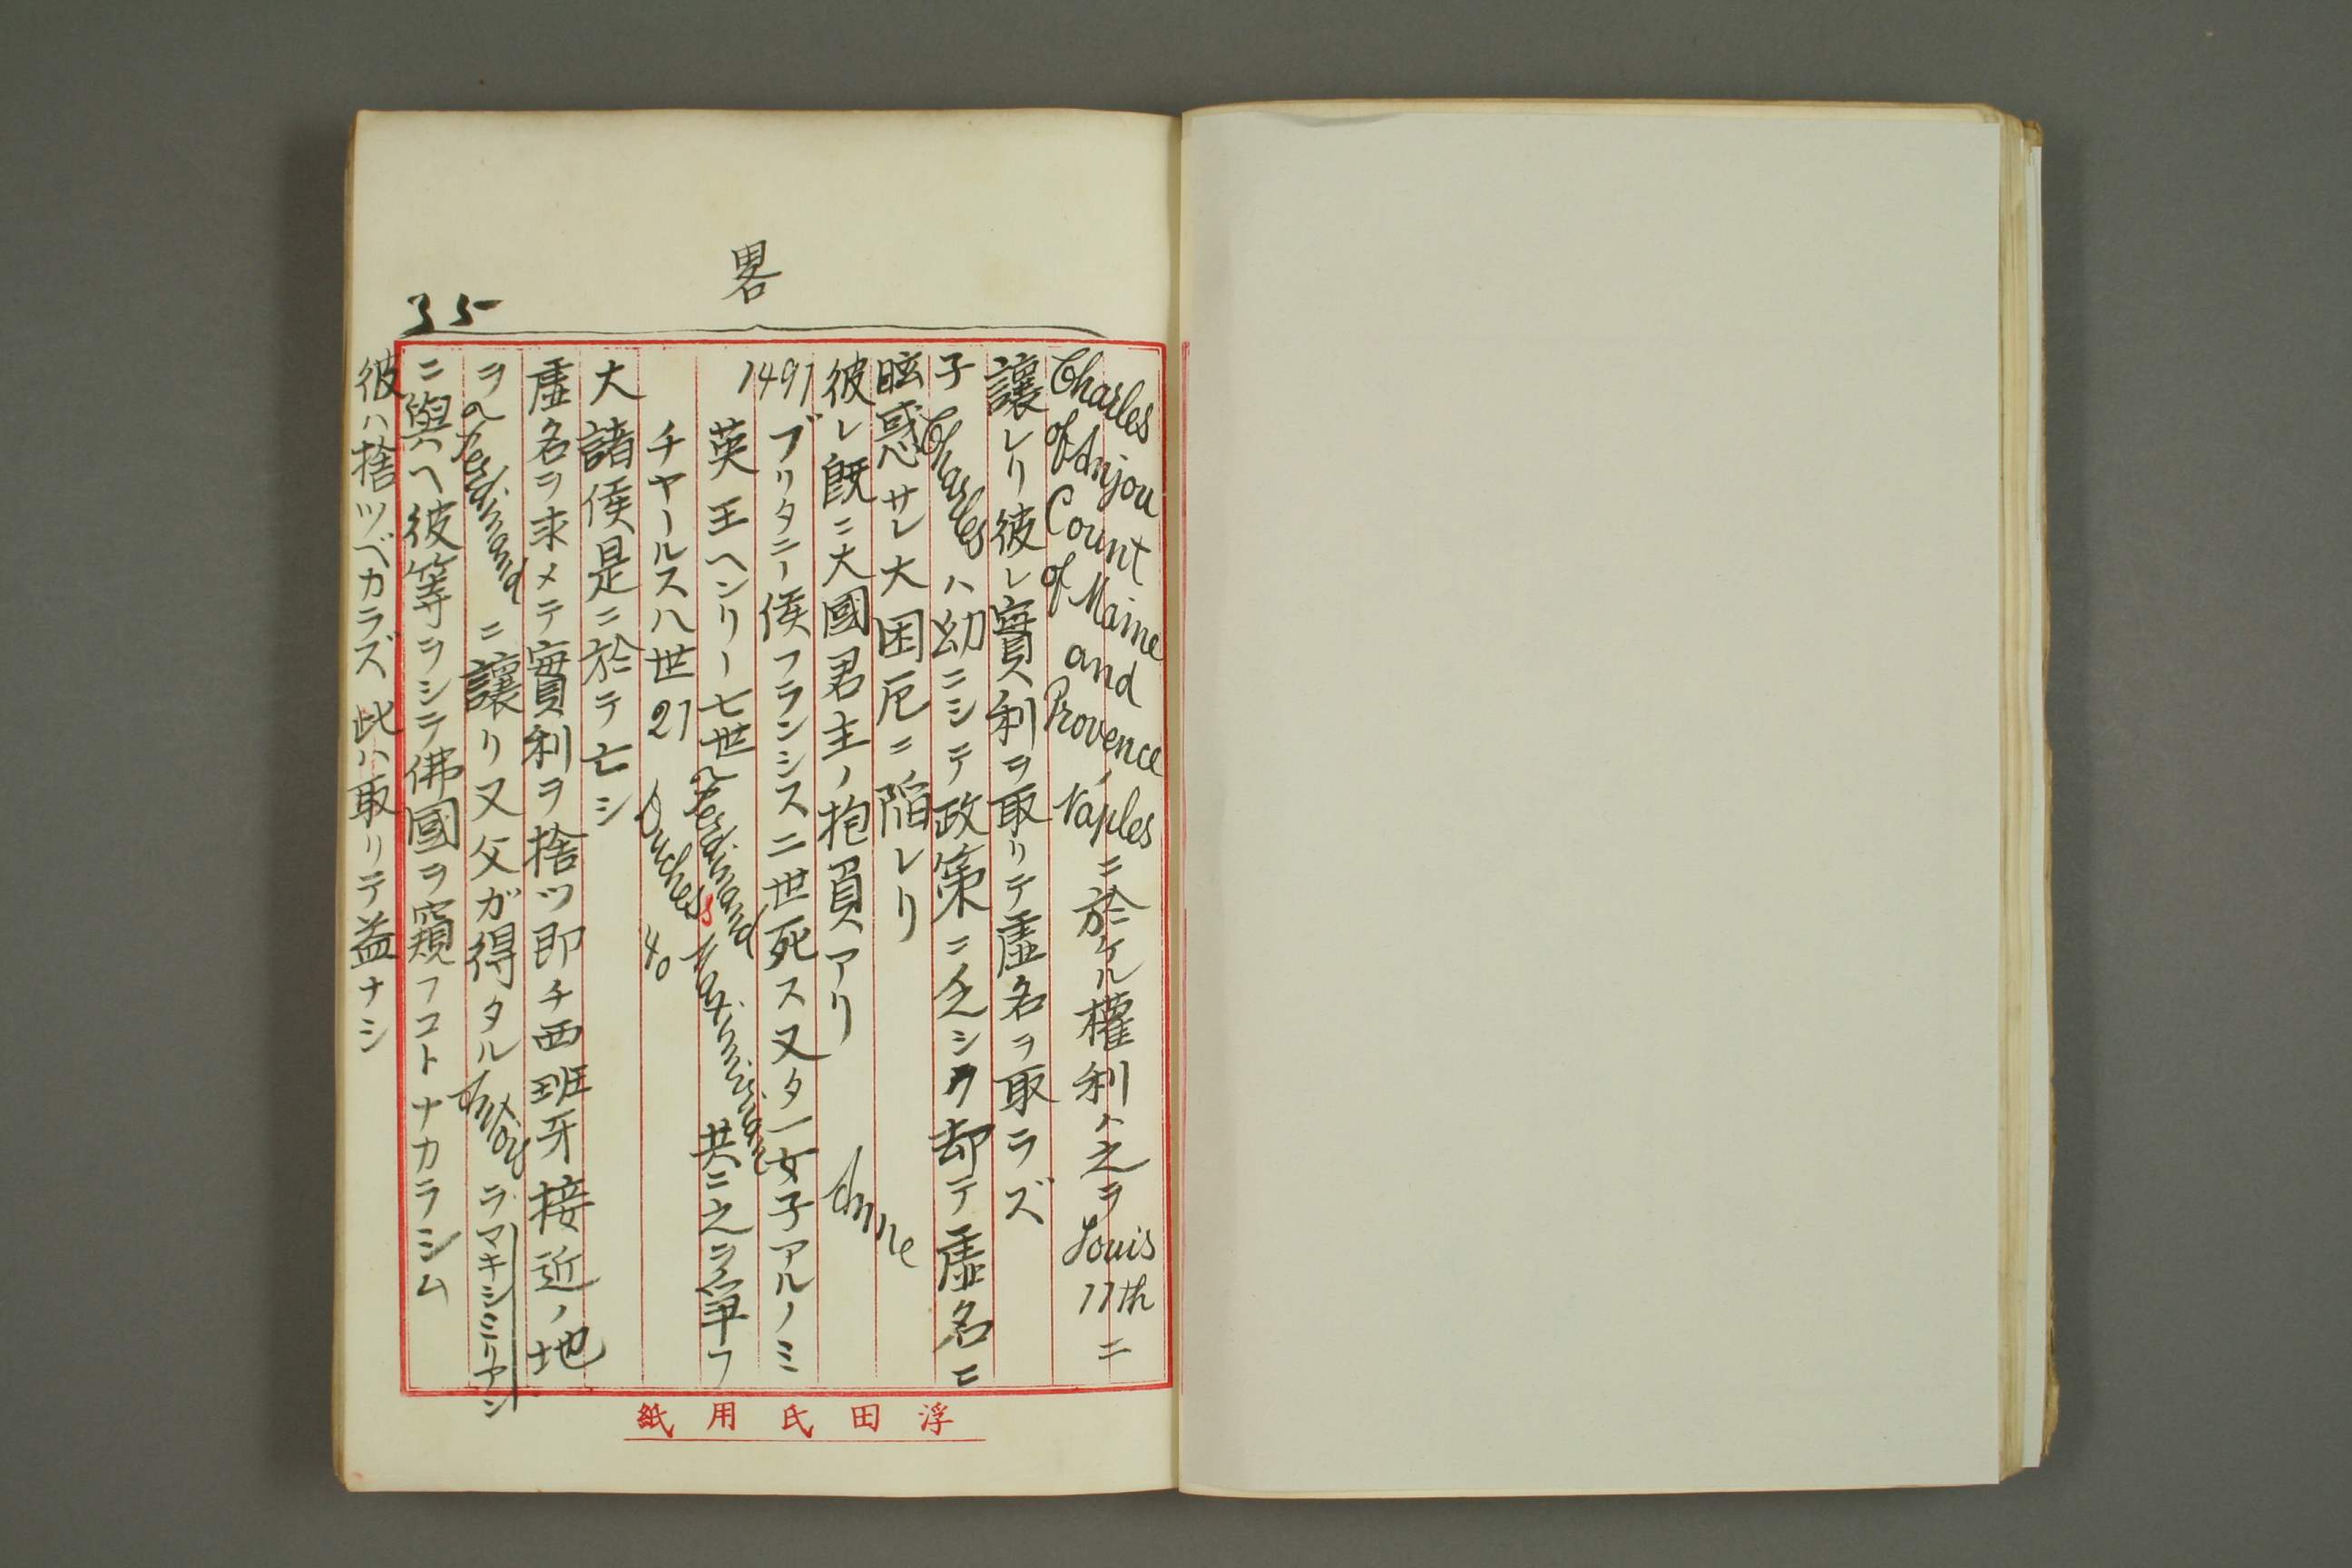 畧
35
Charles of Anjou Count of Maine and Provence ノ Naples ニ於ケル權利ハ之ヲ Louis 11th ニ
讓レリ彼レ實利ヲ取リテ虛名ヲ取ラズ
子 Charles ハ幼ニシテ政策ニ乏シク却テ虛名ニ
眩惑サレ大困厄ニ陷レリ
彼レ既ニ大國君主ノ抱負アリ Anne
1491 ブリタニー侯フランシス二世死ス又タ一女子アルノミ
英王ヘンリー七世 Ferdinand Maximilian 共ニ之ヲ爭フ
チヤールス八世 21 Duchess 40
大諸侯是ニ於テ亡シ
虛名ヲ求メテ實利ヲ捨ツ即チ西班牙接近ノ地
ヲ Ferdinand ニ讓リ又父ガ得タル Artois ヲマキシミリアン
ニ與ヘ彼等ヲシテ佛國ヲ窺フコトナカラシム
彼ハ捨ツベカラズ此ハ取リテ益ナシ
浮田氏用紙